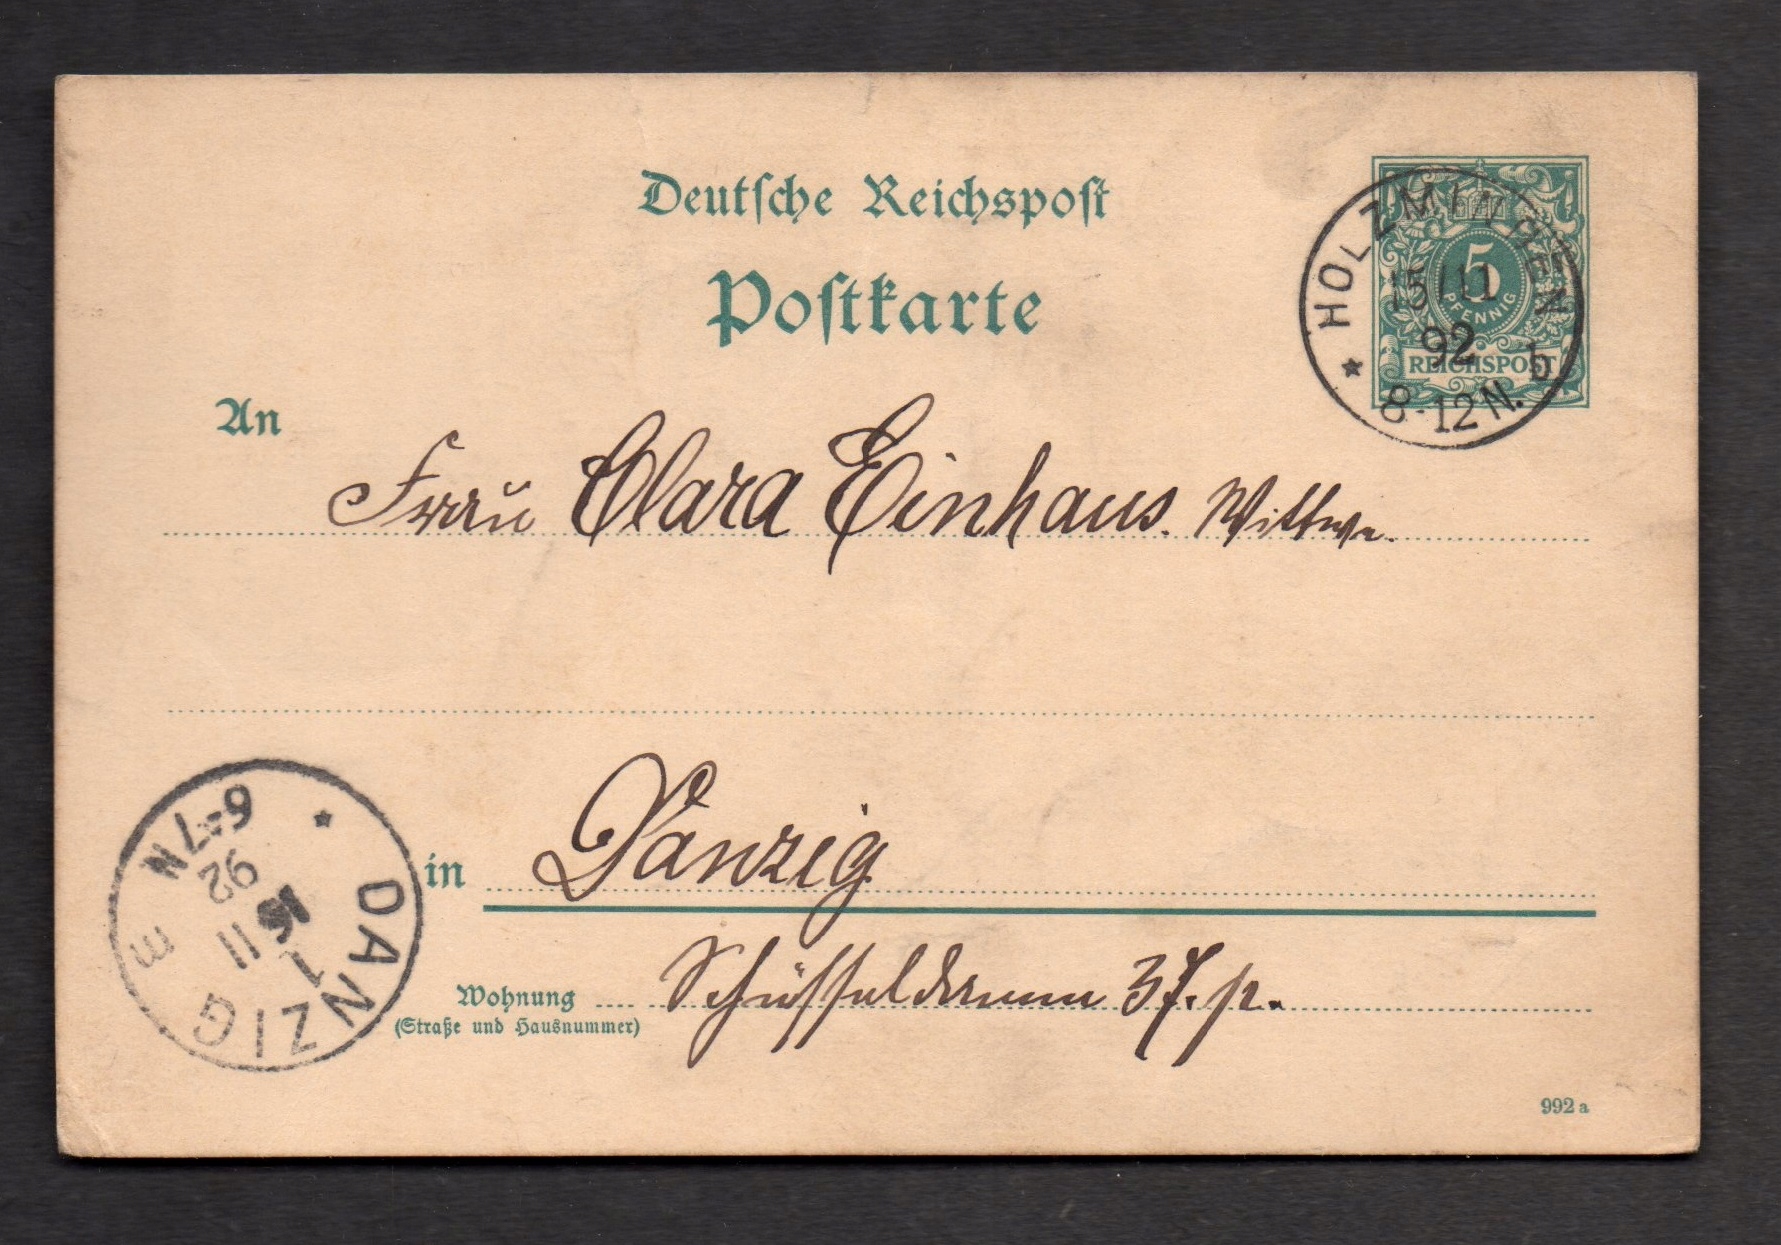 Deutsche Reichspost
Postkarte
HOLZMINDEN
15/11
92
8-12N.
b
5
PFENNIG
REICHSPOST
An
Frau Clara Einhaus. Wittwe.
in Danzig
Wohnung Schüsseldamm 37. p.
(Straße und Hausnummer)
DANZIG
1
16
11
92
6-7N
992 a